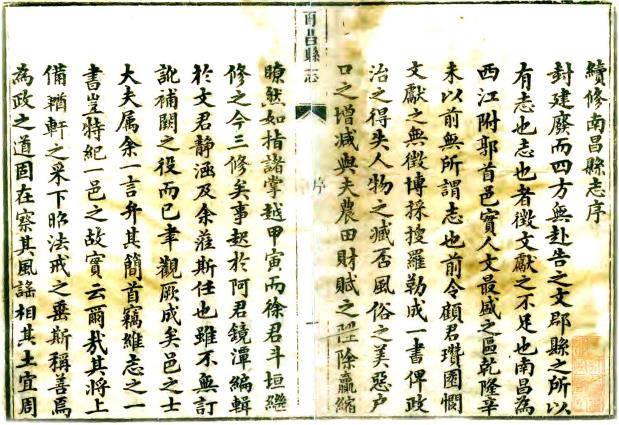 續修南昌縣志序
封建廢而四方無赴告之文郡縣之所以
有志也志也者徵文獻之不足也南昌為
西江附郭首邑實人文最盛之區乾隆辛
未以前無所謂志也前令顧君瓚園憫
文獻之無徵博採搜羅勒成一書俾政
治之得失人物之臧否風俗之美惡戶
口之增減與夫農田財賦之陞除贏縮
南昌縣志
序
瞭然如指諸掌越甲寅而徐君斗垣繼
修之今三修矣事起於阿君鏡潭編輯
於文君靜涵及余蒞斯任也雖不無訂
訛補闕之役而已聿觀厥成矣邑之士
大夫属余一言弁其簡首竊維志之一
書豈特紀一邑之故實云爾哉其將上
備輶軒之采下昭法戒之垂斯稱善焉
為政之道固在察其風謠相其土宜周